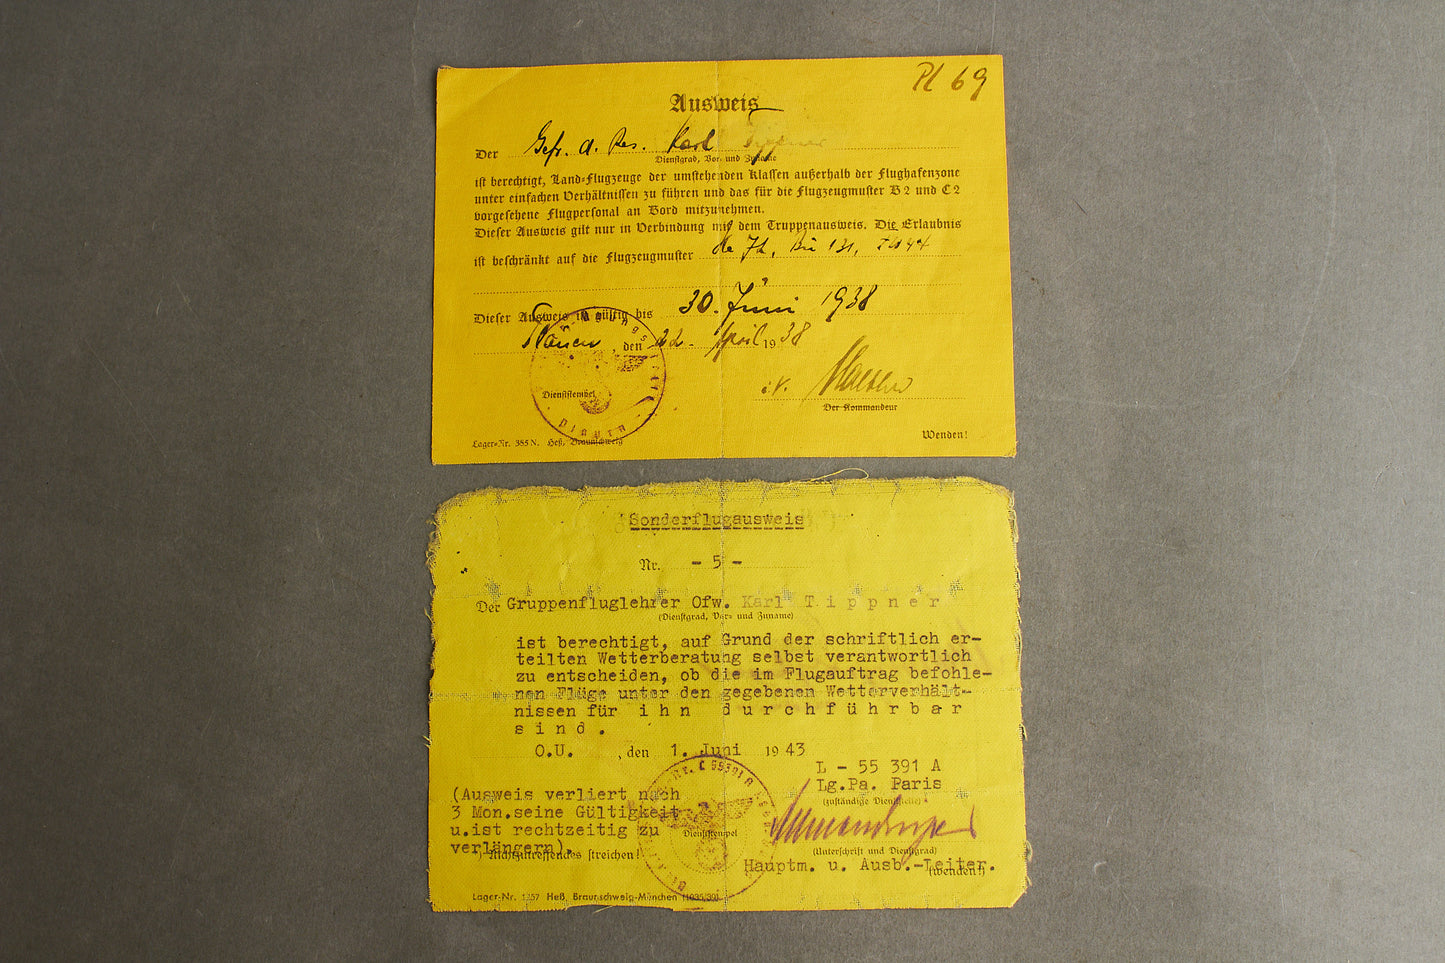 Pl 69
Ausweis
Der Gefr. d. Res. Karl Tippner
Dienstgrad, Vor- und Zuname
ist berechtigt, Land-Flugzeuge der umstehenden Klassen außerhalb der Flughafenzone
unter einfachen Verhältnissen zu führen und das für die Flugzeugmuster B 2 und C 2
vorgesehene Flugpersonal an Bord mitzunehmen.
Dieser Ausweis gilt nur in Verbindung mit dem Truppenausweis. Die Erlaubnis
ist beschränkt auf die Flugzeugmuster He 72, Bü 131, FW 44
Dieser Ausweis ist gültig bis 30. Juni 1938
Plauen, den 22. April 1938
Dienststempel
i.V.
Der Kommandeur
Lager-Nr. 385 N. Heß, Braunschweig
Wenden!
Sonderflugausweis
Nr. - 5 -
Der Gruppenfluglehrer Ofw. Karl T i p p n e r
(Dienstgrad, Vor- und Zuname)
ist berechtigt, auf Grund der schriftlich er-
teilten Wetterberatung selbst verantwortlich
zu entscheiden, ob die im Flugauftrag befohle-
nen Flüge unter den gegebenen Wetterverhält-
nissen für i h n d u r c h f ü h r b a r
s i n d .
O.U. , den 1. Juni 1943
L - 55 391 A
Lg.Pa. Paris
(zuständige Dienststelle)
(Ausweis verliert nach
3 Mon.seine Gültigkeit
u.ist rechtzeitig zu
verlängern).
Dienststempel
*) Nichtzutreffendes streichen!
(Unterschrift und Dienstgrad)
Hauptm. u. Ausb.-Leiter.
(wenden!)
Lager-Nr. 1257 Heß, Braunschweig-München (1035/39)